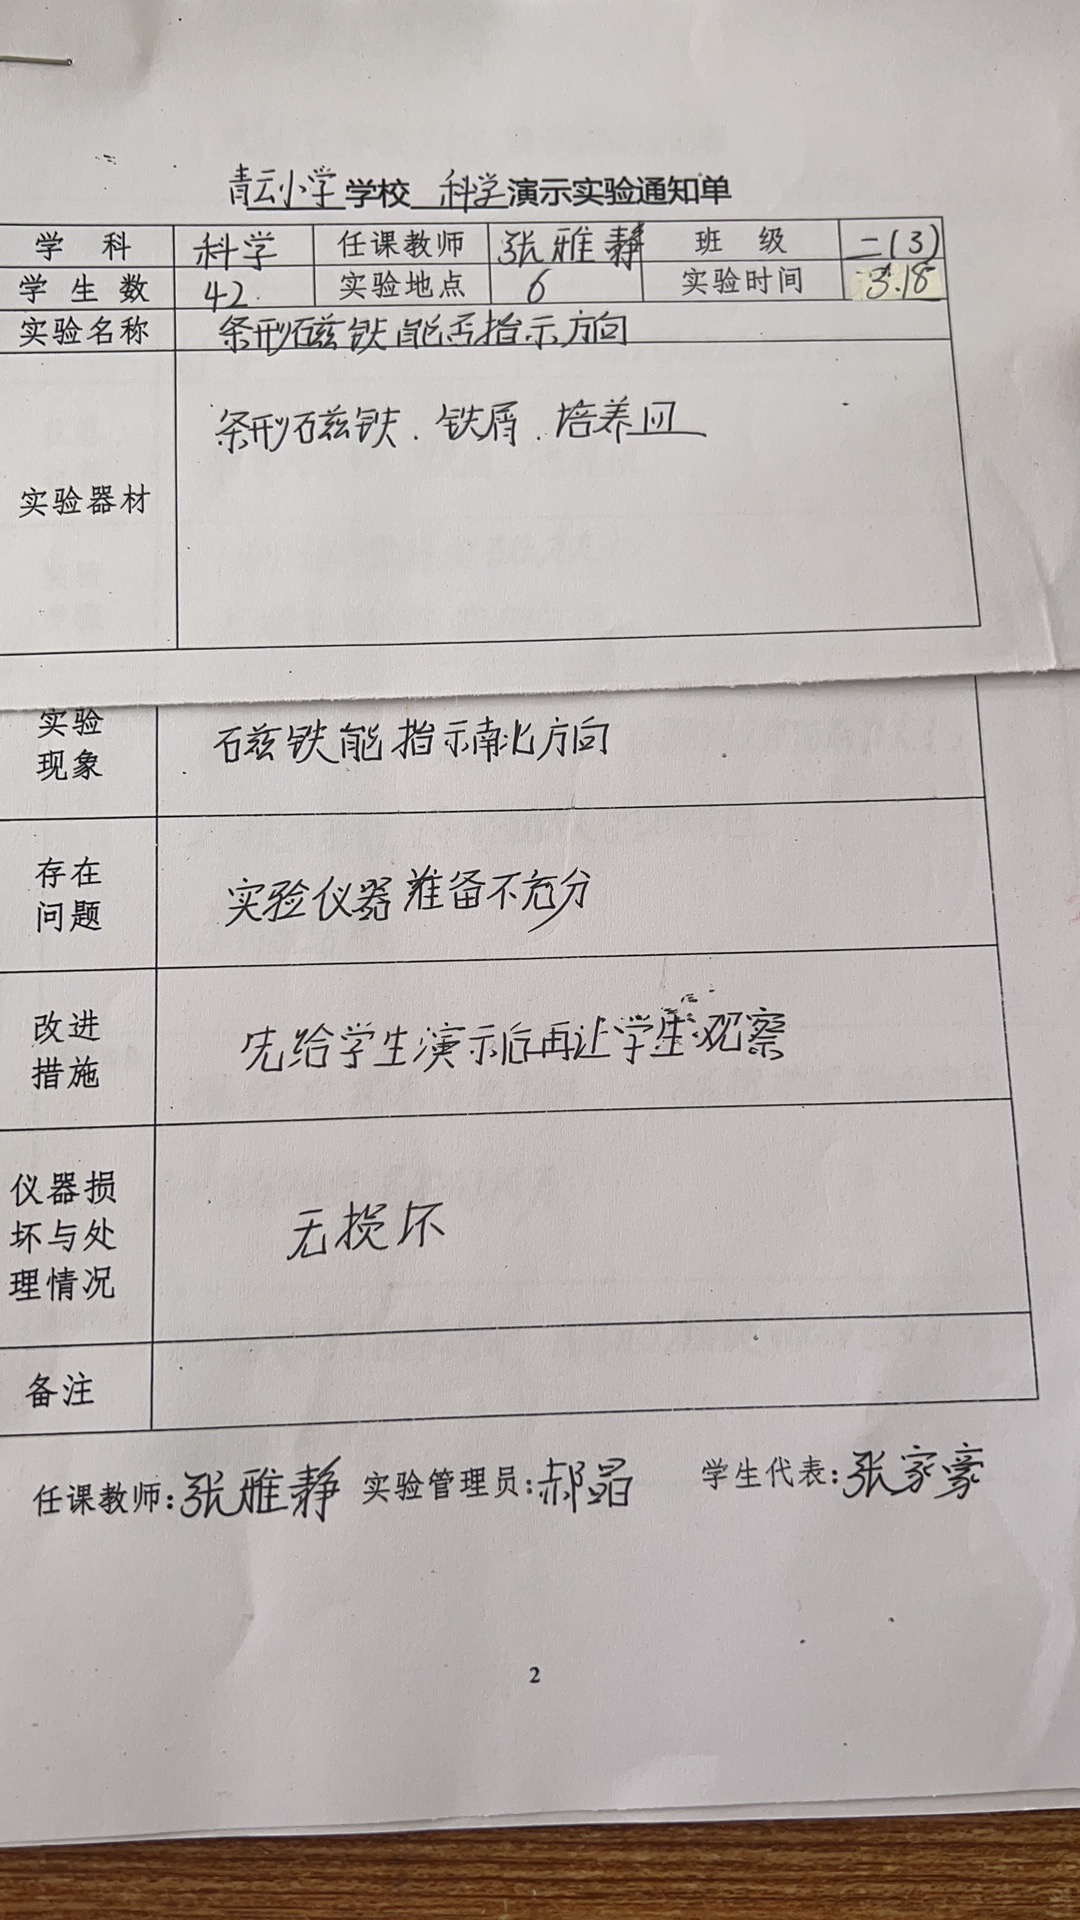 青云小学学校 科学演示实验通知单
学 科 科学 任课教师 张雅静 班 级 二(3)
学生数 42. 实验地点 6 实验时间 3.18
实验名称 条形磁铁能否指示方向
实验器材 条形磁铁.铁屑.培养皿
实验
现象
磁铁能指示南北方向
存在
问题
实验仪器准备不充分
改进
措施
先给学生演示后再让学生观察
仪器损
坏与处
理情况
无损坏
备注
任课教师:张雅静 实验管理员:郝晶 学生代表:张家豪
2